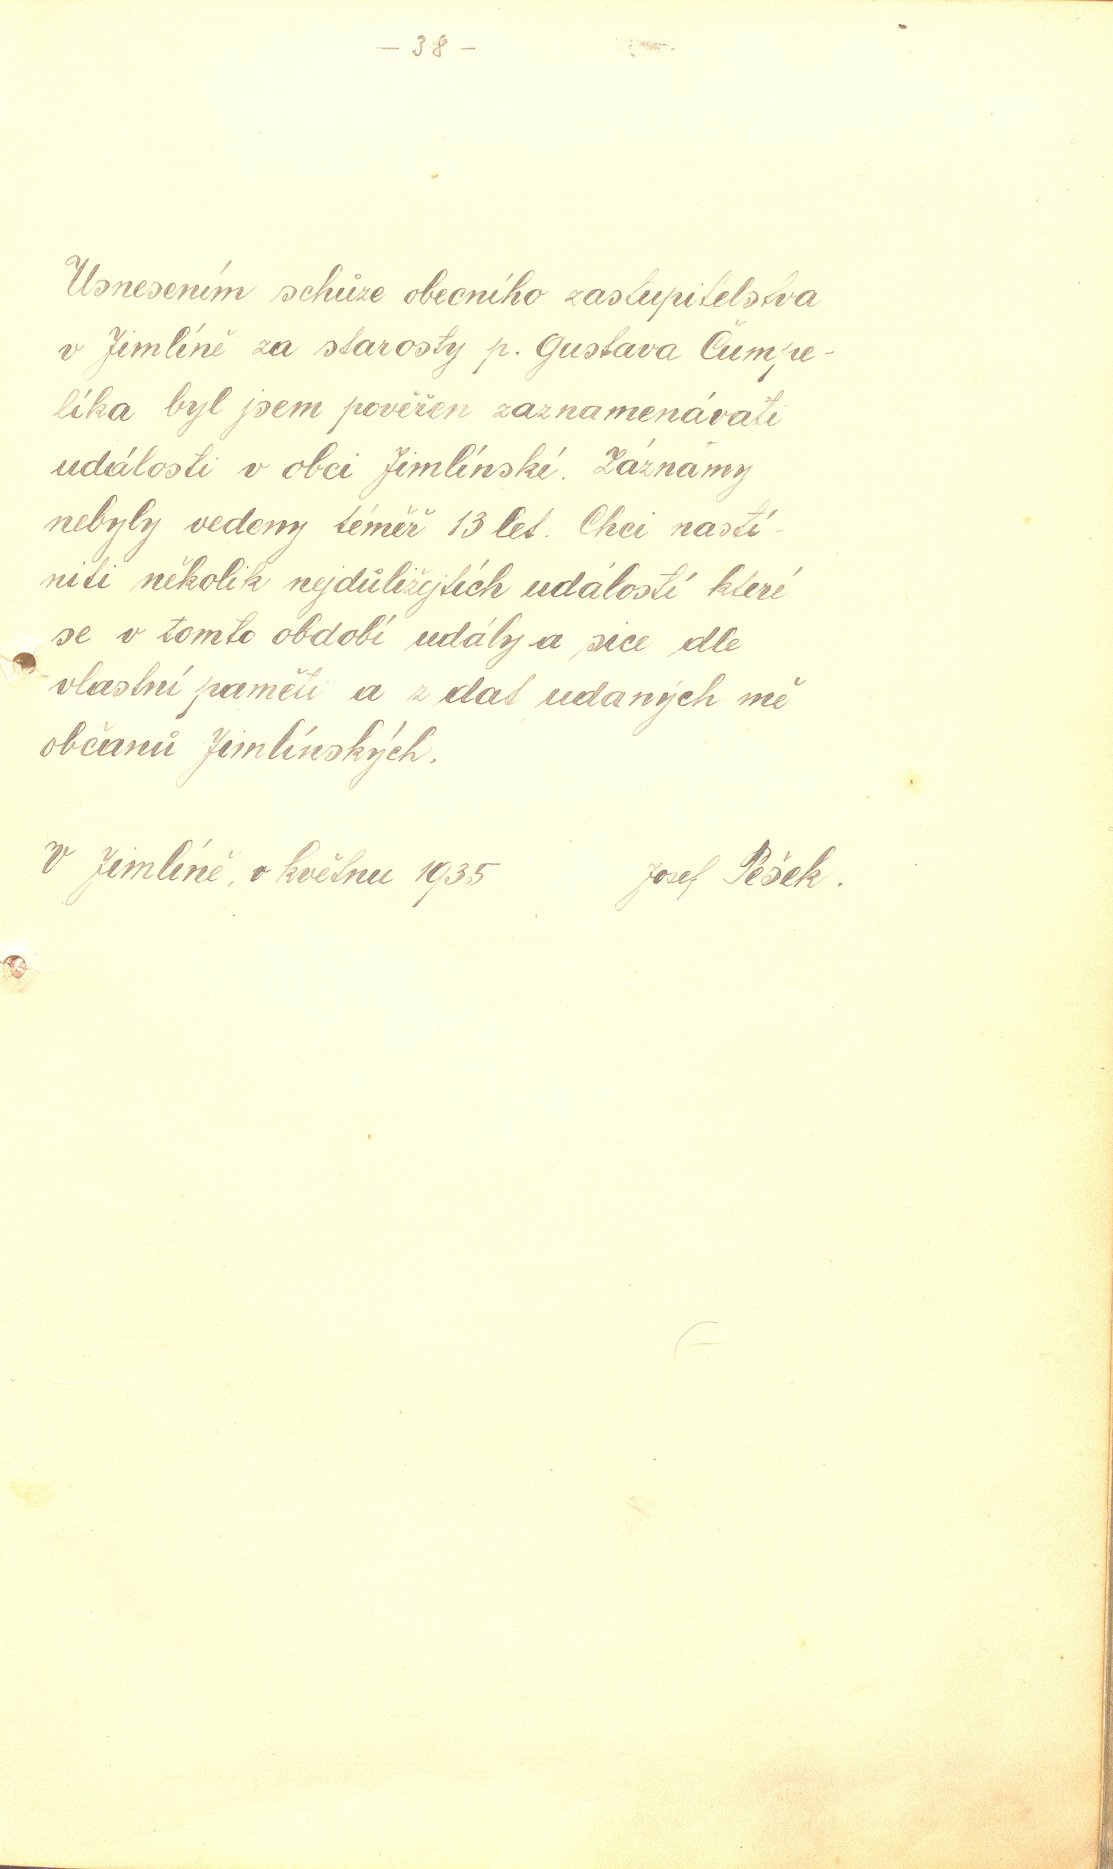 - 38 -
Usnesením schůze obecního zastupitelstva
v Jimlíně za starosty p. Gustava Čumpe-
líka byl jsem pověřen zaznamenávati
události v obci Jimlínské. Záznamy
nebyly vedeny téměř 13 let. Chci nastí-
niti několik nejdůližejtích událostí které
se v tomto období udály a sice dle
vlastní paměti a z dat udaných mě
občanů Jimlínských.
V Jimlíně, v květnu 1935 Josef Pešek.